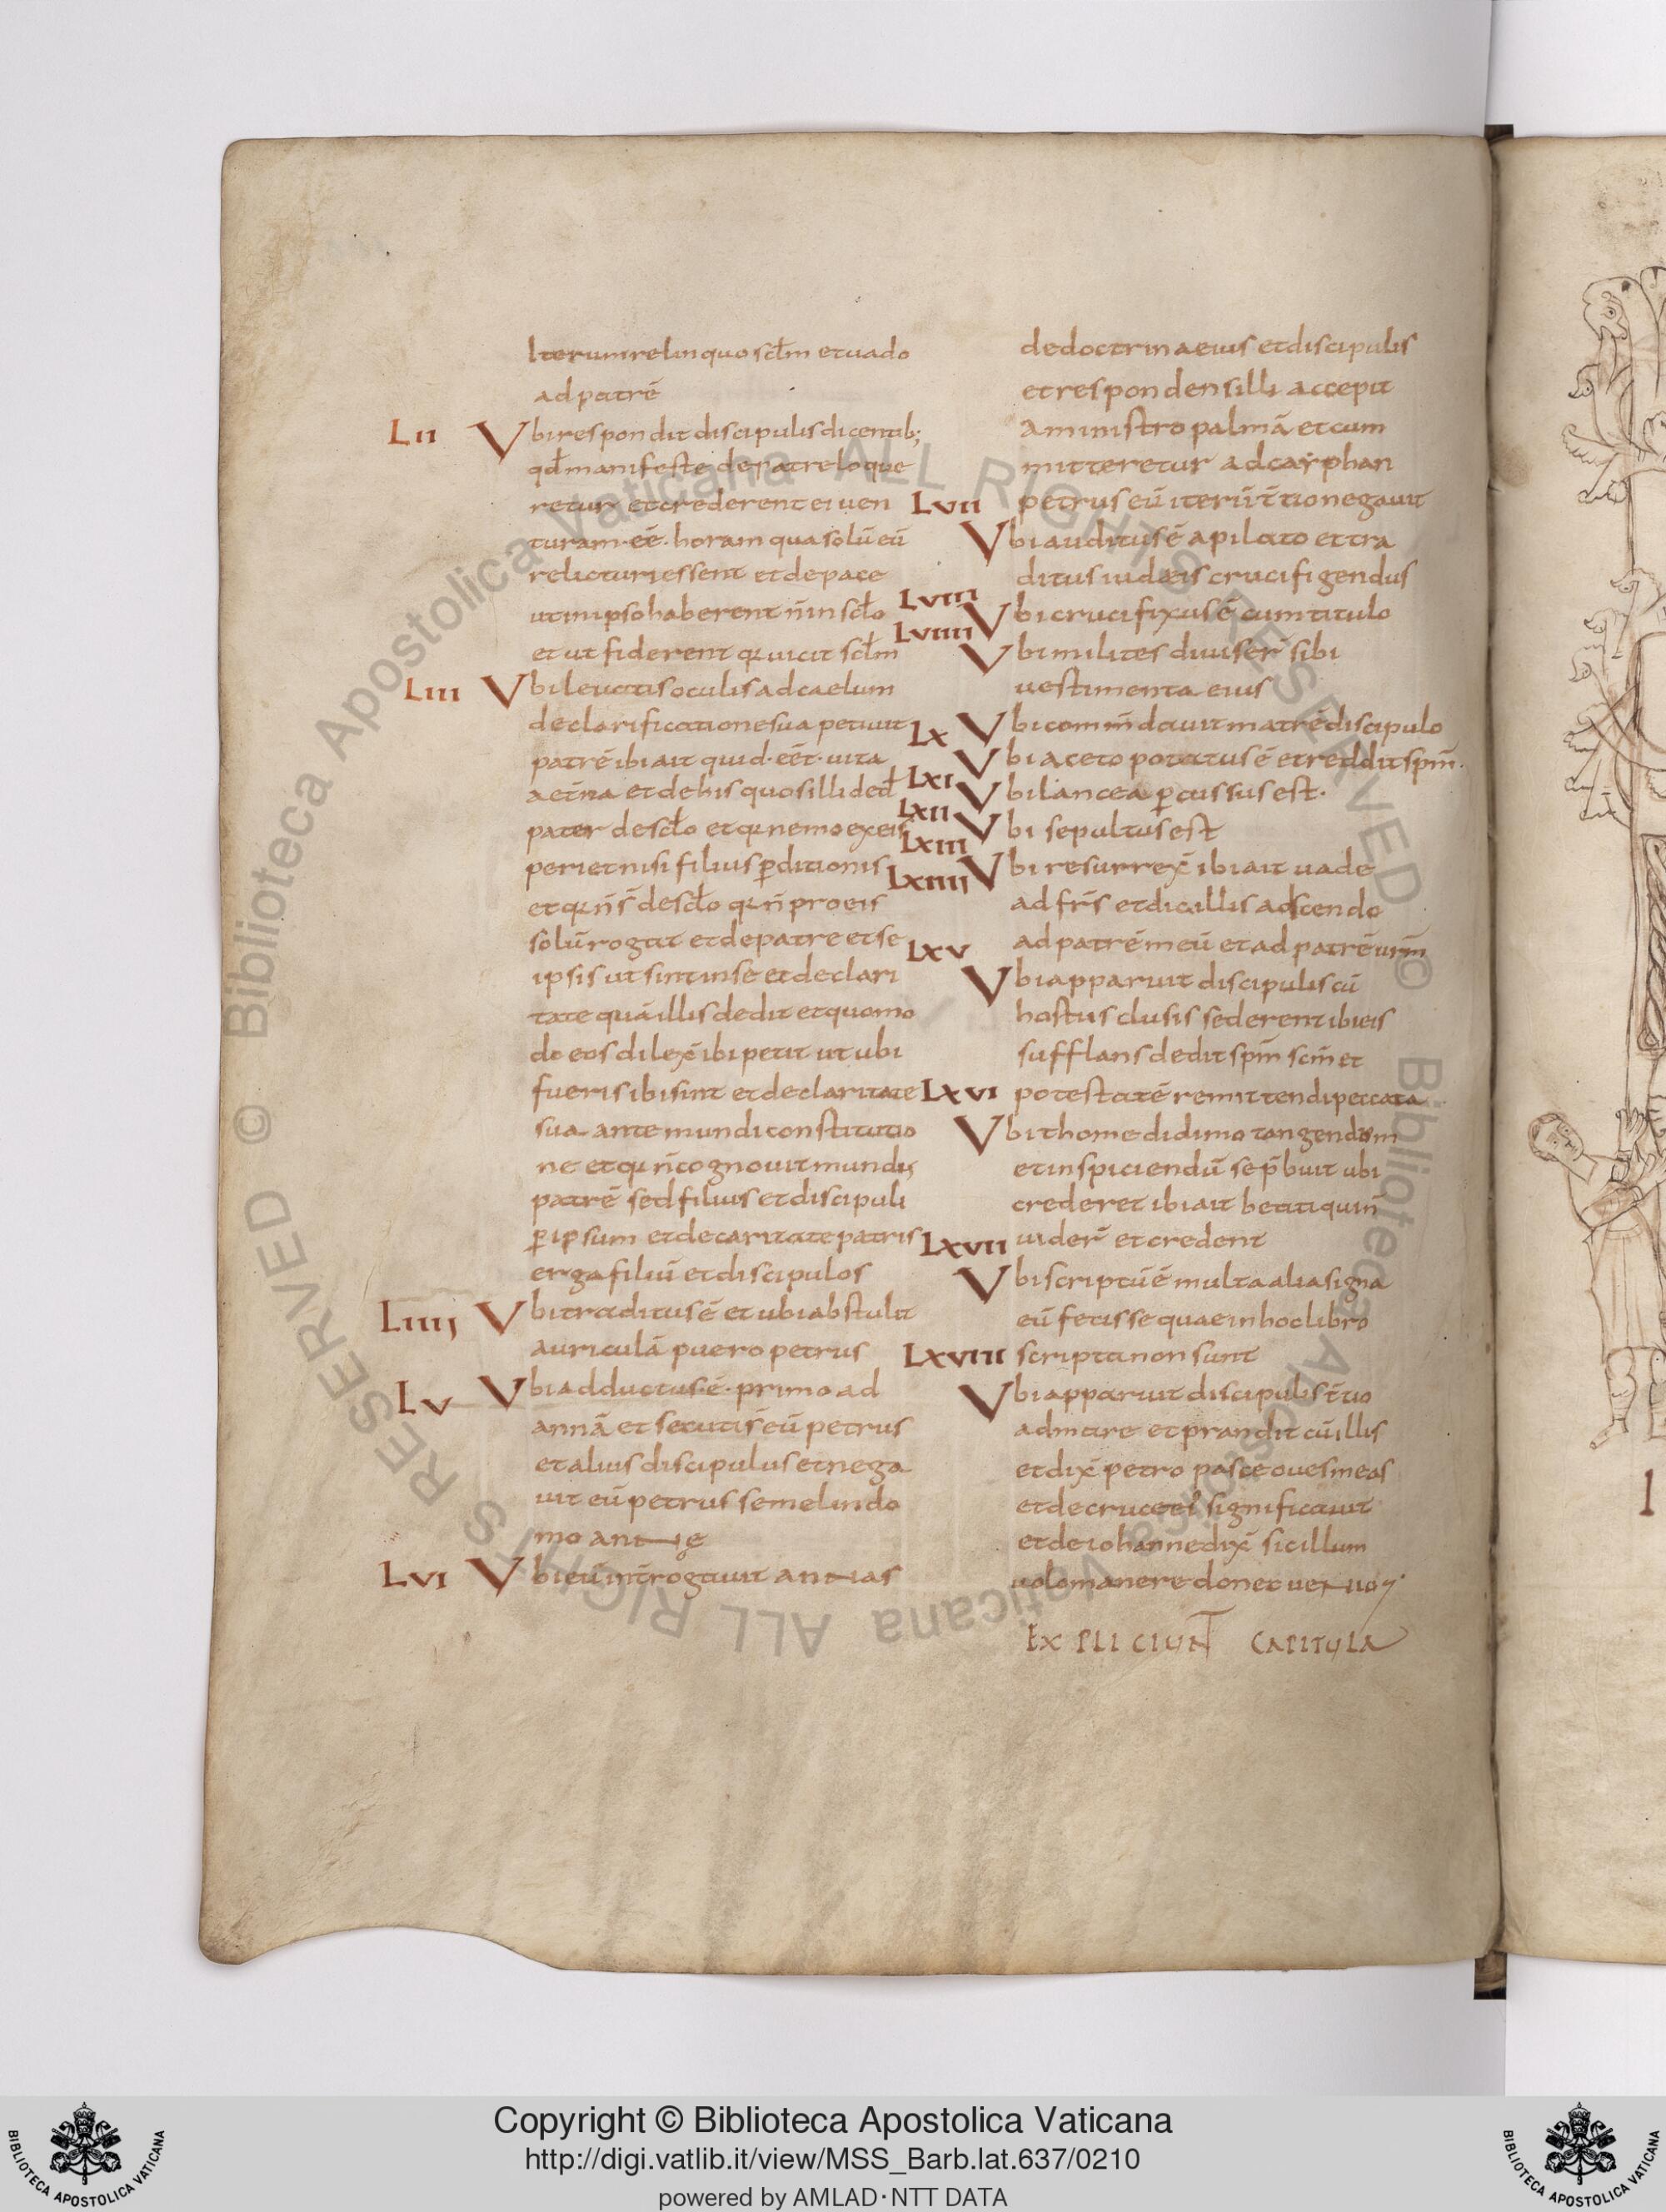 Iterum relinquo scłm et uado
ad patrē
LII Vbi respondit discipulis dicentib;
qđ manifeste de patre loque
retur et crederent ei uen
turam·eē·horam qua solū eū
relicturi essent et de pace
ut in ipso haberent n̄ in scło
et ut fiderent qui uicit scłm
LIII Vbi leuatis oculis ad caelum
de clarificatione sua petiuit
patrē ibi ait quid·eēt·uita
aet̄na et de his quos illi ded̄
pater de scło et quia nemo ex eis
periet nisi filius ꝑditionis
et quia n̄ s̄ de scło quia n̄ pro eis
solū rogat et de patre et se
ipsis ut sint in se et de clari
tate quā illis dedit et quomo
do eos dilex̄ ibi petit ut ubi
fueris ibi sint et de claritate
sua ante mundi constitutio
ne et quia n̄ cognouit mundus
patrē sed filius et discipuli
ꝑ ipsum et de caritate patris
erga filiū et discipulos
LIIIJ Vbi traditus ē et ubi abstulit
auriculā puero petrus
LV Vbi adductus·ē·primo ad
annā et secutus ē eū petrus
et alius discipulus et nega
uit eū petrus semel in do
mo annę
LVI Vbi eū int̄rogauit annas
de doctrina eius et discipulis
et respondens illi accepit
a ministro palmā et cum
mitteretur ad cayphan
LVII petrus eū iterū t̄tio negauit
Vbi auditus ē a pilato et tra
ditus iudaeis crucifigendus
LVIII Vbi crucifixus ē cum titulo
LVIIII Vbi milites diuiser̄ sibi
uestimenta eius
LX Vbi com̄dauit matrē discipulo
Vbi aceto potatus ē et reddit spm̄·
LXI Vbi lancea ꝑcussus est·
LXII Vbi sepultus est
LXIII
LXIIIJ Vbi resurrex̄ ibi ait uade
ad frs̄ et dic illis adscendo
LXV ad patrē meū et ad patrē urm̄
Vbi apparuit discipulis cū
hostiis clusis sederent ibi eis
sufflans dedit spm̄ scm̄ et
LXVI potestatē remittendi peccata
Vbi thome didimo tangendum
et inspiciendū se p̄buit ubi
crederet ibi ait beati qui n̄
LXVII uider̄ et credent
Vbi scriptū ē multa alia signa
eū fecisse quae in hoc libro
LXVIII scripta non sunt
Vbi apparuit discipulis t̄tio
ad mare et prandit cū illis
et dix̄ petro pasce oues meas
et de cruce ei significauit
et de iohanne dix̄ sic illum
uolo manere donec uenio
EXPLICIUNT CAPITULA
© Biblioteca Apostolica Vaticana ALL RIGHTS RESERVED © Biblioteca Apostolica Vaticana ALL RIGHTS RESERVED
Copyright © Biblioteca Apostolica Vaticana
http://digi.vatlib.it/view/MSS_Barb.lat.637/0210
powered by AMLAD·NTT DATA
BIBLIOTECA APOSTOLICA VATICANA
BIBLIOTECA APOSTOLICA VATICANA